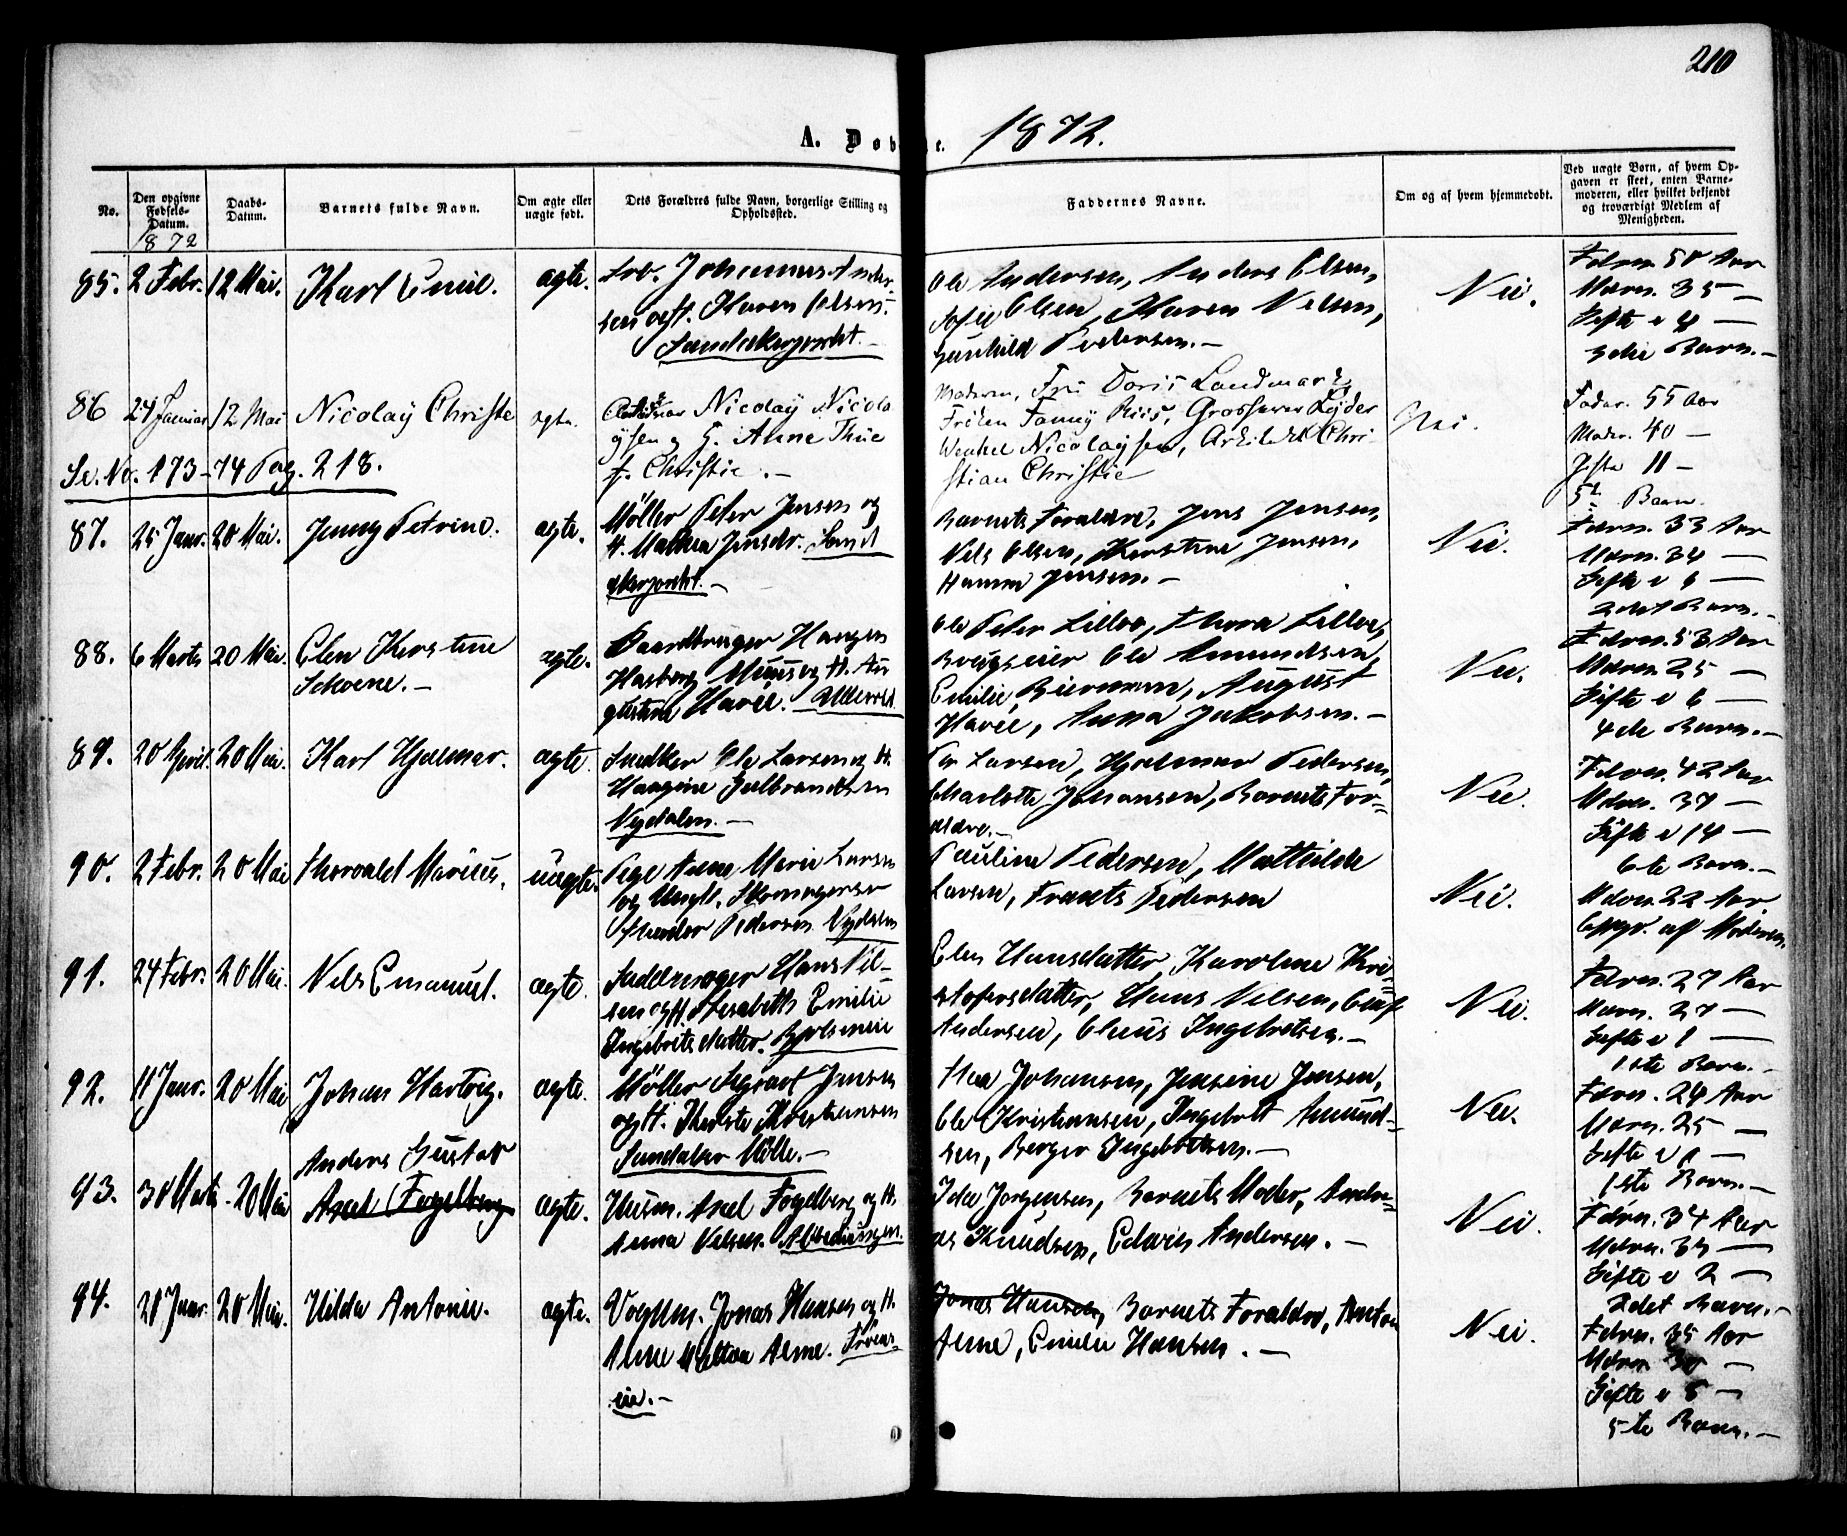 210
A. Døb e. 1872.
No.
Den opgivne Fødsels-Datum.
1872
Daabs-Datum.
Barnets fulde Navn.
Om ægte eller uægte født.
Dets Forældres fulde Navn, borgerlige Stilling og Opholdssted.
Faddernes Navne.
Om og af hvem hjemmedøbt.
Ved uægte Børn, af hvem Opgaven er skeet, enten Barnemoderen, eller hvilket bekjendt og troværdigt Medlem af Menigheden.
85. 2 Febr. 12 Mai. Karl Emil. ægte.
Johannes Ander-
sen og H. Karen Olsen.
Sandakergjordet.
Ole Andersen, Anders Olsen,
Sofie Olsen, Karen Nelsen,
Gunhild Pedersen.
Nei.
Fdrn. 50 Aar
Mdrn. 35 —
Gifte i 4 —
3die Barn.
86 24 Januar 12 Mai Nicolay Christie ægte.
Nicolay Nicola
ysen og H. Anne Thue
f. Christie.
Moderen, Fru Doris Landmark,
Frøken Fanny Riis, Grosserer Lyder
Wenkel Nicolaysen, Arkitekt Chri-
stian Christie
Nei.
Fader. 55 Aar
Moder. 40 —
Gifte 11 —
5te Barn.
Se. No. 173-74 Pag. 218.
87. 25 Janr. 20 Mai. Jenny Petrine. ægte.
Møller Peter Jensen og
H. Mathea Jensdr. Sand
akerjordet.
Barnets Forældre, Jens Jensen,
Nels Olsen, Kirstine Jensen,
Hanna Jensen.
Nei.
Fdrn. 33 Aar
Mdrn. 34 —
Gifte i 6 —
2det Barn.
88. 6 Marts 20 Mai. Elen Kirstine
ægte.
Hasberg H. Au
gustine Havée. Ullevold
Ole Peter Lilloe, Thora Lilloe,
Brugseier Ole Amundsen,
Emilie Biermann, August
Havée, Anna Jakobsen.
Nei.
Fdrn. 53 Aar
Mdrn. 25 —
Gifte i 6 —
4de Barn.
89. 20 April. 20 Mai. Karl Hjalmar. ægte.
Snedker Ole Larsen og H.
Haagine Gulbrandsen
Nydalen.
Per Larsen, Hjalmar Pedersen,
Charlotte Johansen, Barnets For-
ældre.
Nei.
Fdrn. 42 Aar
Mdrn. 37 —
Gifte i 14 —
6te Barn.
90. 2 Febr. 20 Mai Thorvald Marius. uægte.
Pige Anne Marie Larsen
og Ungk. Skomagersv
Theodor Pedersen Nydalen
Pauline Pedersen, Mathilde
Larsen, Frants Pedersen
Nei.
Mdrn. 22 Aar.
Opgr. af Moderen.
91. 24 Febr. 20 Mai. Nels Emanuel. ægte.
Sadelmager Hans Nil-
sen og H. Elisabeth Emilie
Ingebretsdatter. Bjølseneie
Elen Hansdatter, Karoline Kri-
stofersdatter, Hans Nelsen, Oluf
Andersen, Olaus Ingebretsen.
Nei.
Fdrn. 27 Aar
Mdrn. 27 —
Gifte i 1 —
1ste Barn.
92. 11 Janr. 20 Mai Johan Hartvig. ægte.
Møller Sigvart Jensen
og H. Kristiansen
Sandaker Mølle.
Johansen, Jensine Jensen,
Ole Kristiansen, Ingebret Amund-
sen, Berger Ingebretsen.
Nei.
Fdrn. 24 Aar
Mdrn. 25 —
Gifte i 1 —
1ste Barn.
93. 30 Marts. 20 Mai
Anders Gustav
Axel Fogelberg
ægte.
Husm. Axel Fogelberg og H.
Anna Nelsen.
Ida Jørgensen, Barnets Moder, Andre-
as Knudsen, Edvin Andersen.
Nei.
Fdrn. 34 Aar
Mdrn. 34 —
Gifte i 2 —
2det Barn.
94. 21 Janr. 20 Mai. Hilda Antonie. ægte.
Vognm. Jonas Hansen og H.
Anne Mathea Arne.
eie.
Jonas Hansen, Barnets Forældre, Anton
Arne, Emilie Hansen.
Nei.
Fdrn. 35 Aar
Mdrn. 30 —
Gifte i 8 —
5te Barn.